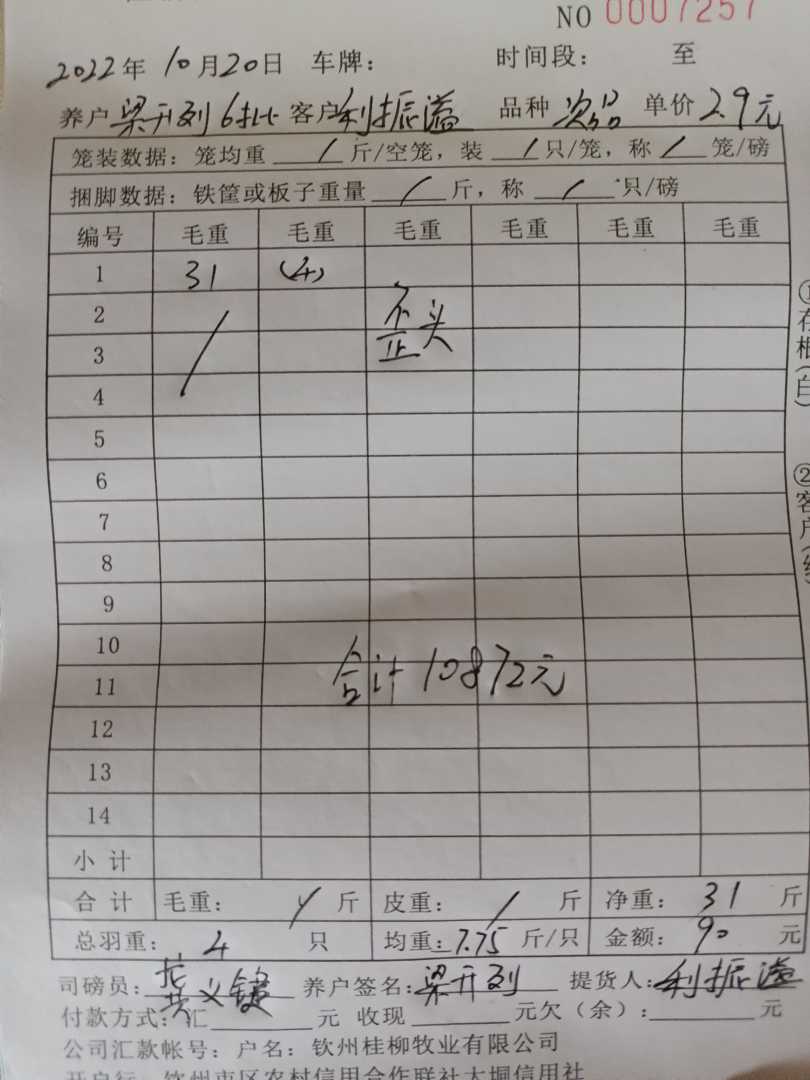 NO 0007257
2022年 10月20日 车牌： 时间段： 至
养户 梁开列 6批 客户 利振溢 品种 次品 单价 2.9元
笼装数据：笼均重 / 斤/空笼，装 / 只/笼，称 / 笼/磅
捆脚数据：铁筐或板子重量 / 斤，称 / 只/磅
编号 毛重 毛重 毛重 毛重 毛重 毛重
1 31 (4)
2
歪头
3
4
5
6
7
8
9
10
合计10872元
11
12
13
14
小 计
合 计 毛重： 斤 皮重： / 斤 净重： 31 斤
总羽重： 4 只 均重：7.75 斤/只 金额： 90 元
司磅员： 义键 养户签名：梁开列 提货人：利振溢
付款方式：汇 元 收现 元欠（余）： 元
公司汇款帐号：户名：钦州桂柳牧业有限公司
开户行 钦州市区农村信用合作联社大垌信用社
①存根（白）
②客户（红